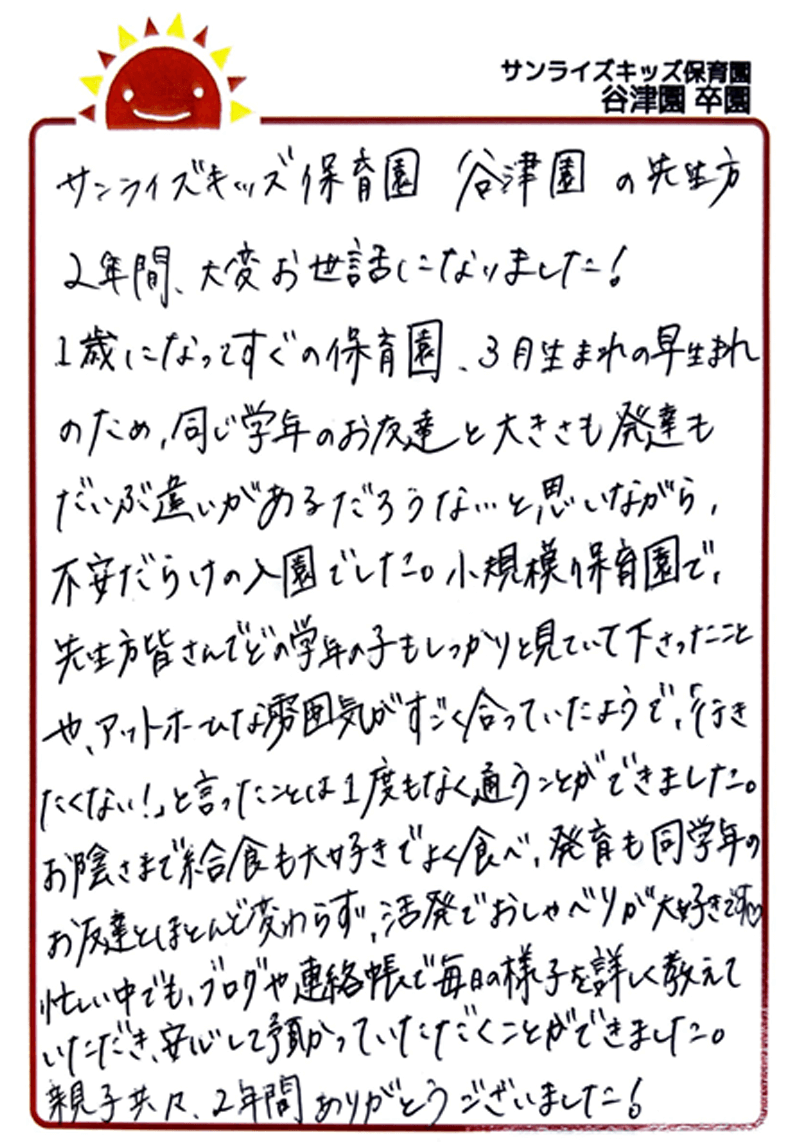 サンライズキッズ保育園
谷津園 卒園
サンライズキッズ保育園 谷津園 の先生方
2年間、大変お世話になりました!
1歳になってすぐの保育園、3月生まれの早生まれ
のため、同じ学年のお友達と大きさも発達も
だいぶ違いがあるだろうな…と思いながら、
不安だらけの入園でした。小規模保育園で、
先生方皆さんでどの学年の子もしっかりと見ていて下さったこと
や、アットホームな雰囲気がすごく合っていたようで、「行き
たくない!」と言ったことは1度もなく通うことができました。
お陰さまで給食も大好きでよく食べ、発育も同学年の
お友達とほとんど変わらず、活発でおしゃべりが大好きです♡
忙しい中でも、ブログや連絡帳で毎日の様子を詳しく教えて
いただき、安心して預かっていただくことができました。
親子共々、2年間ありがとうございました!